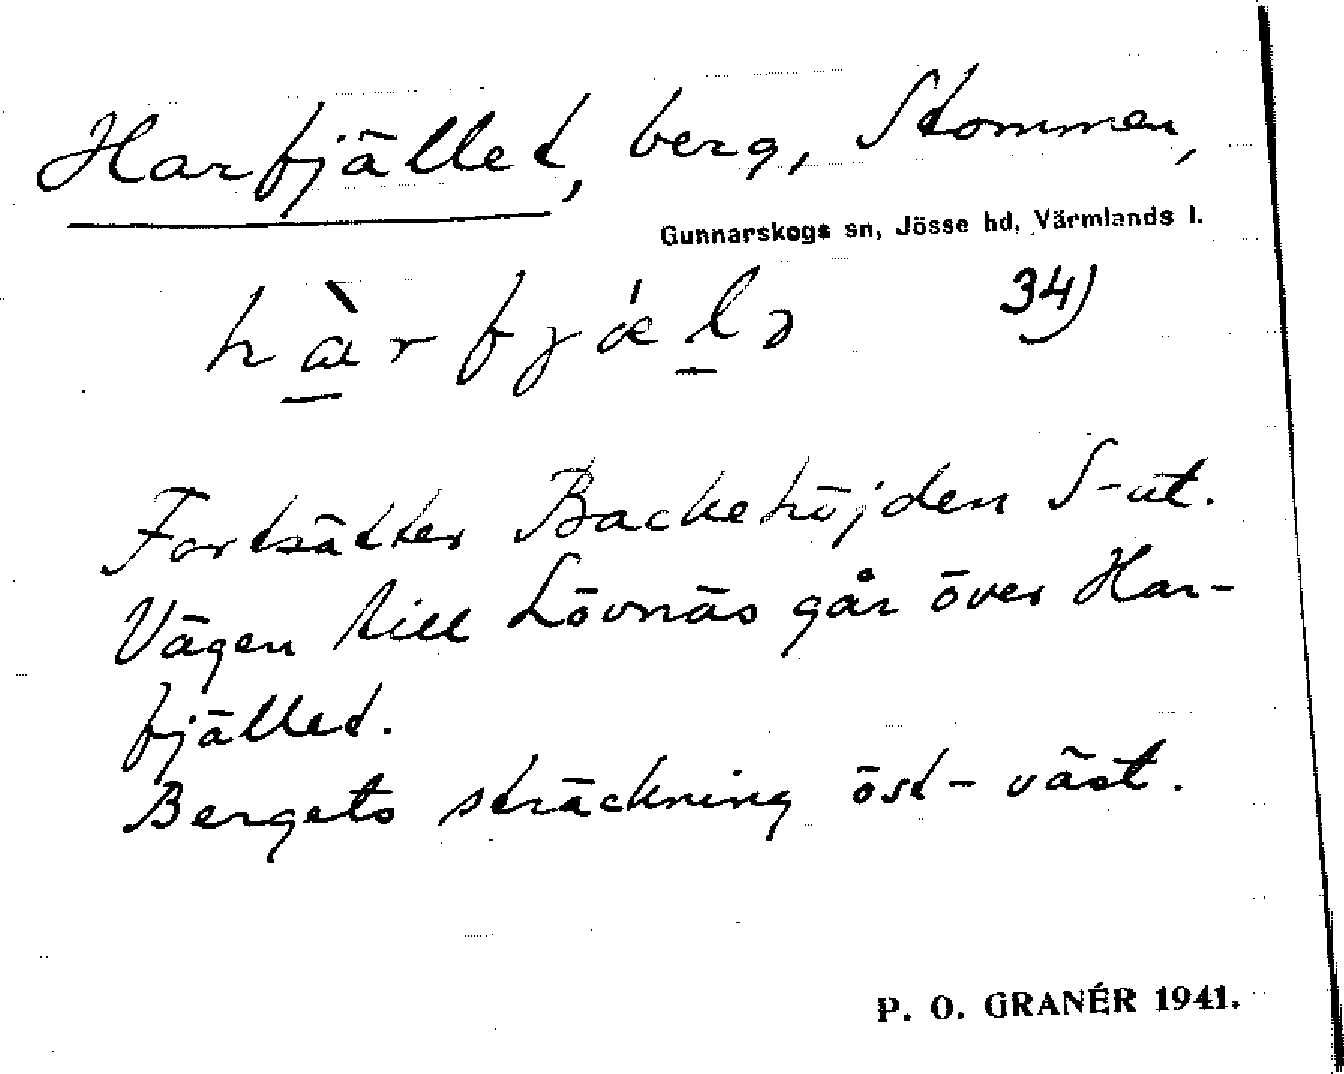 Harfjället, berg, Stommen,
Gunnarskogs sn, Jösse hd, Värmlands l.
hàrfjǽlə 34)
Fortsätter Backehöjden S-ut.
Vägen till Lövnäs går över Har-
fjället.
Bergets sträckning öst-väst.
P. O. GRANÉR 1941.